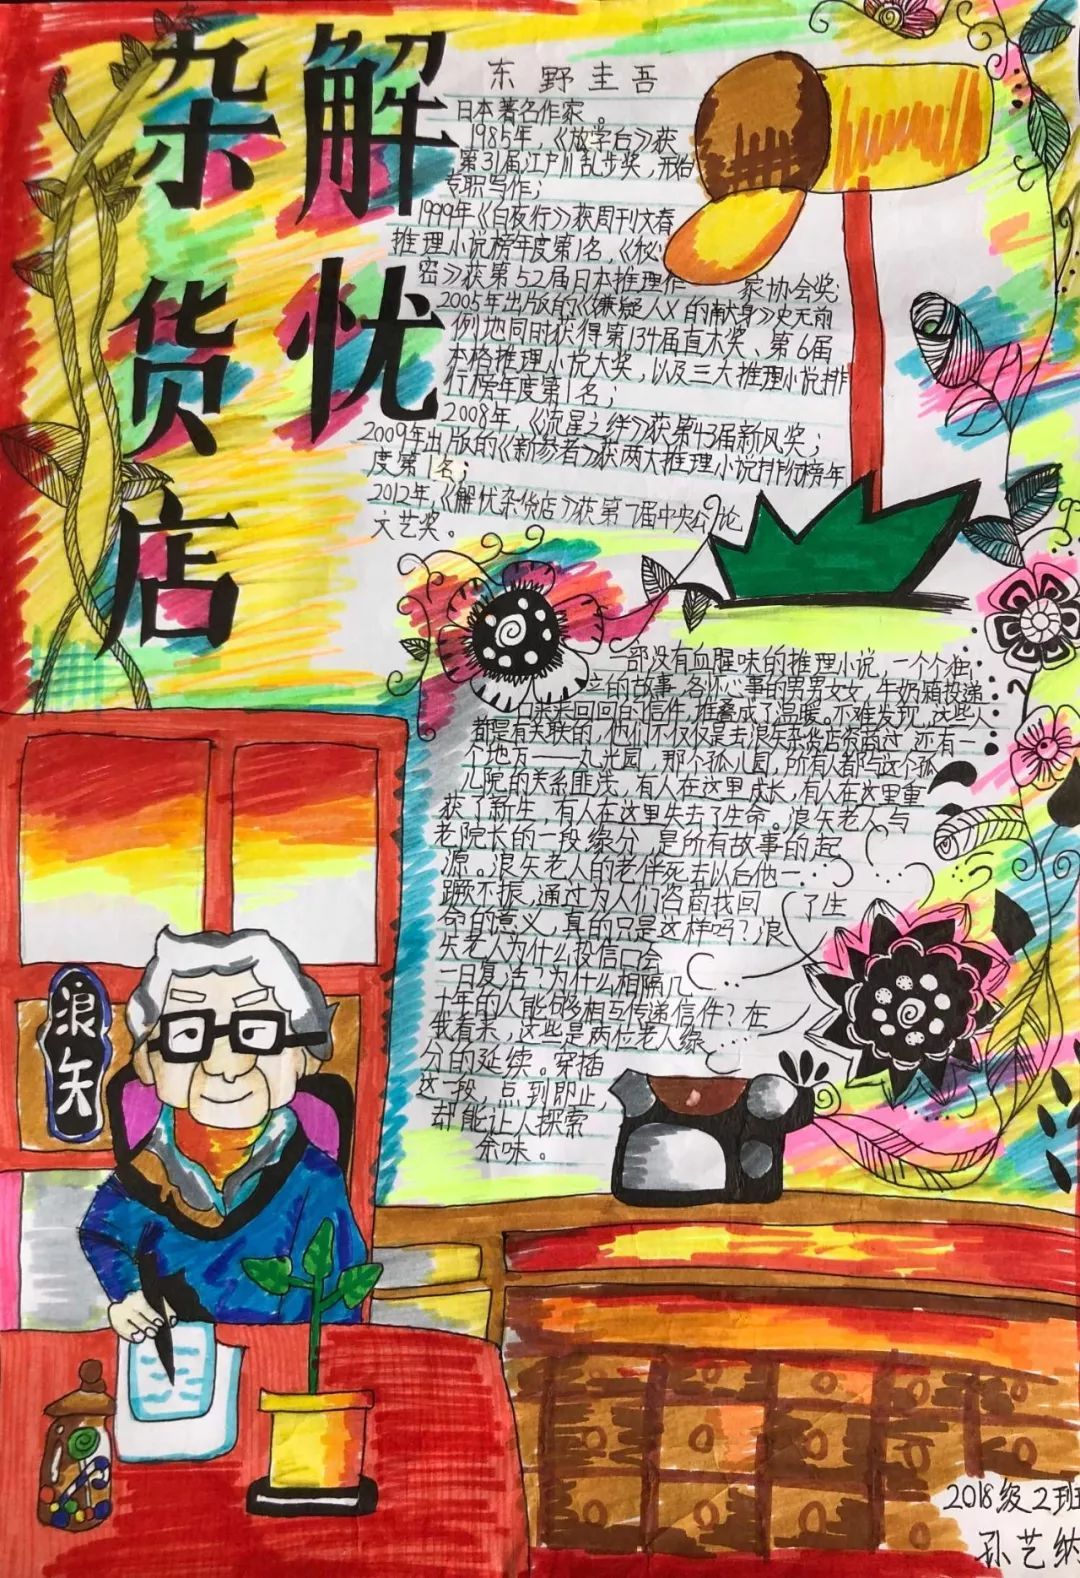 解忧
杂货店
东野圭吾
日本著名作家。
1985年,《放学后》获
第31届江户川乱步奖,开始
专职写作;
1999年《白夜行》获周刊文春
推理小说榜年度第1名,《秘
密》获第52届日本推理作家协会奖;
2005年出版的《嫌疑人X的献身》史无前
例地同时获得第134届直木奖、第6届
本格推理小说大奖,以及三大推理小说排
行榜年度第1名;
2008年,《流星之绊》获第43届新风奖;
2009年出版的《新参者》获两大推理小说排行榜年
度第1名;
2012年,《解忧杂货店》获第7届中央公论
文艺奖。
一部没有血腥味的推理小说,一个个独
立的故事,各怀心事的男男女女,牛奶箱投递
口来来回回的信件,堆叠成了温暖。不难发现,这些人
都是有关联的,他们不仅仅是去浪矢杂货店咨商过,还有一
个地方——丸光园,那个孤儿园,所有人都与这个孤
儿院的关系匪浅,有人在这里成长,有人在这里重
获了新生,有人在这里失去了生命。浪矢老人与
老院长的一段缘分,是所有故事的起
源。浪矢老人的老伴死去以后他一
蹶不振,通过为人们咨商找回了生
命的意义,真的只是这样吗?浪
矢老人为什么投信口会
一日复活?为什么相隔几
十年的人能够相与传递信件?在
我看来,这些是两位老人缘
分的延续。穿插
这一段,点到即止,
却能让人探索
余味。
浪矢
2018级2班
孙艺纳